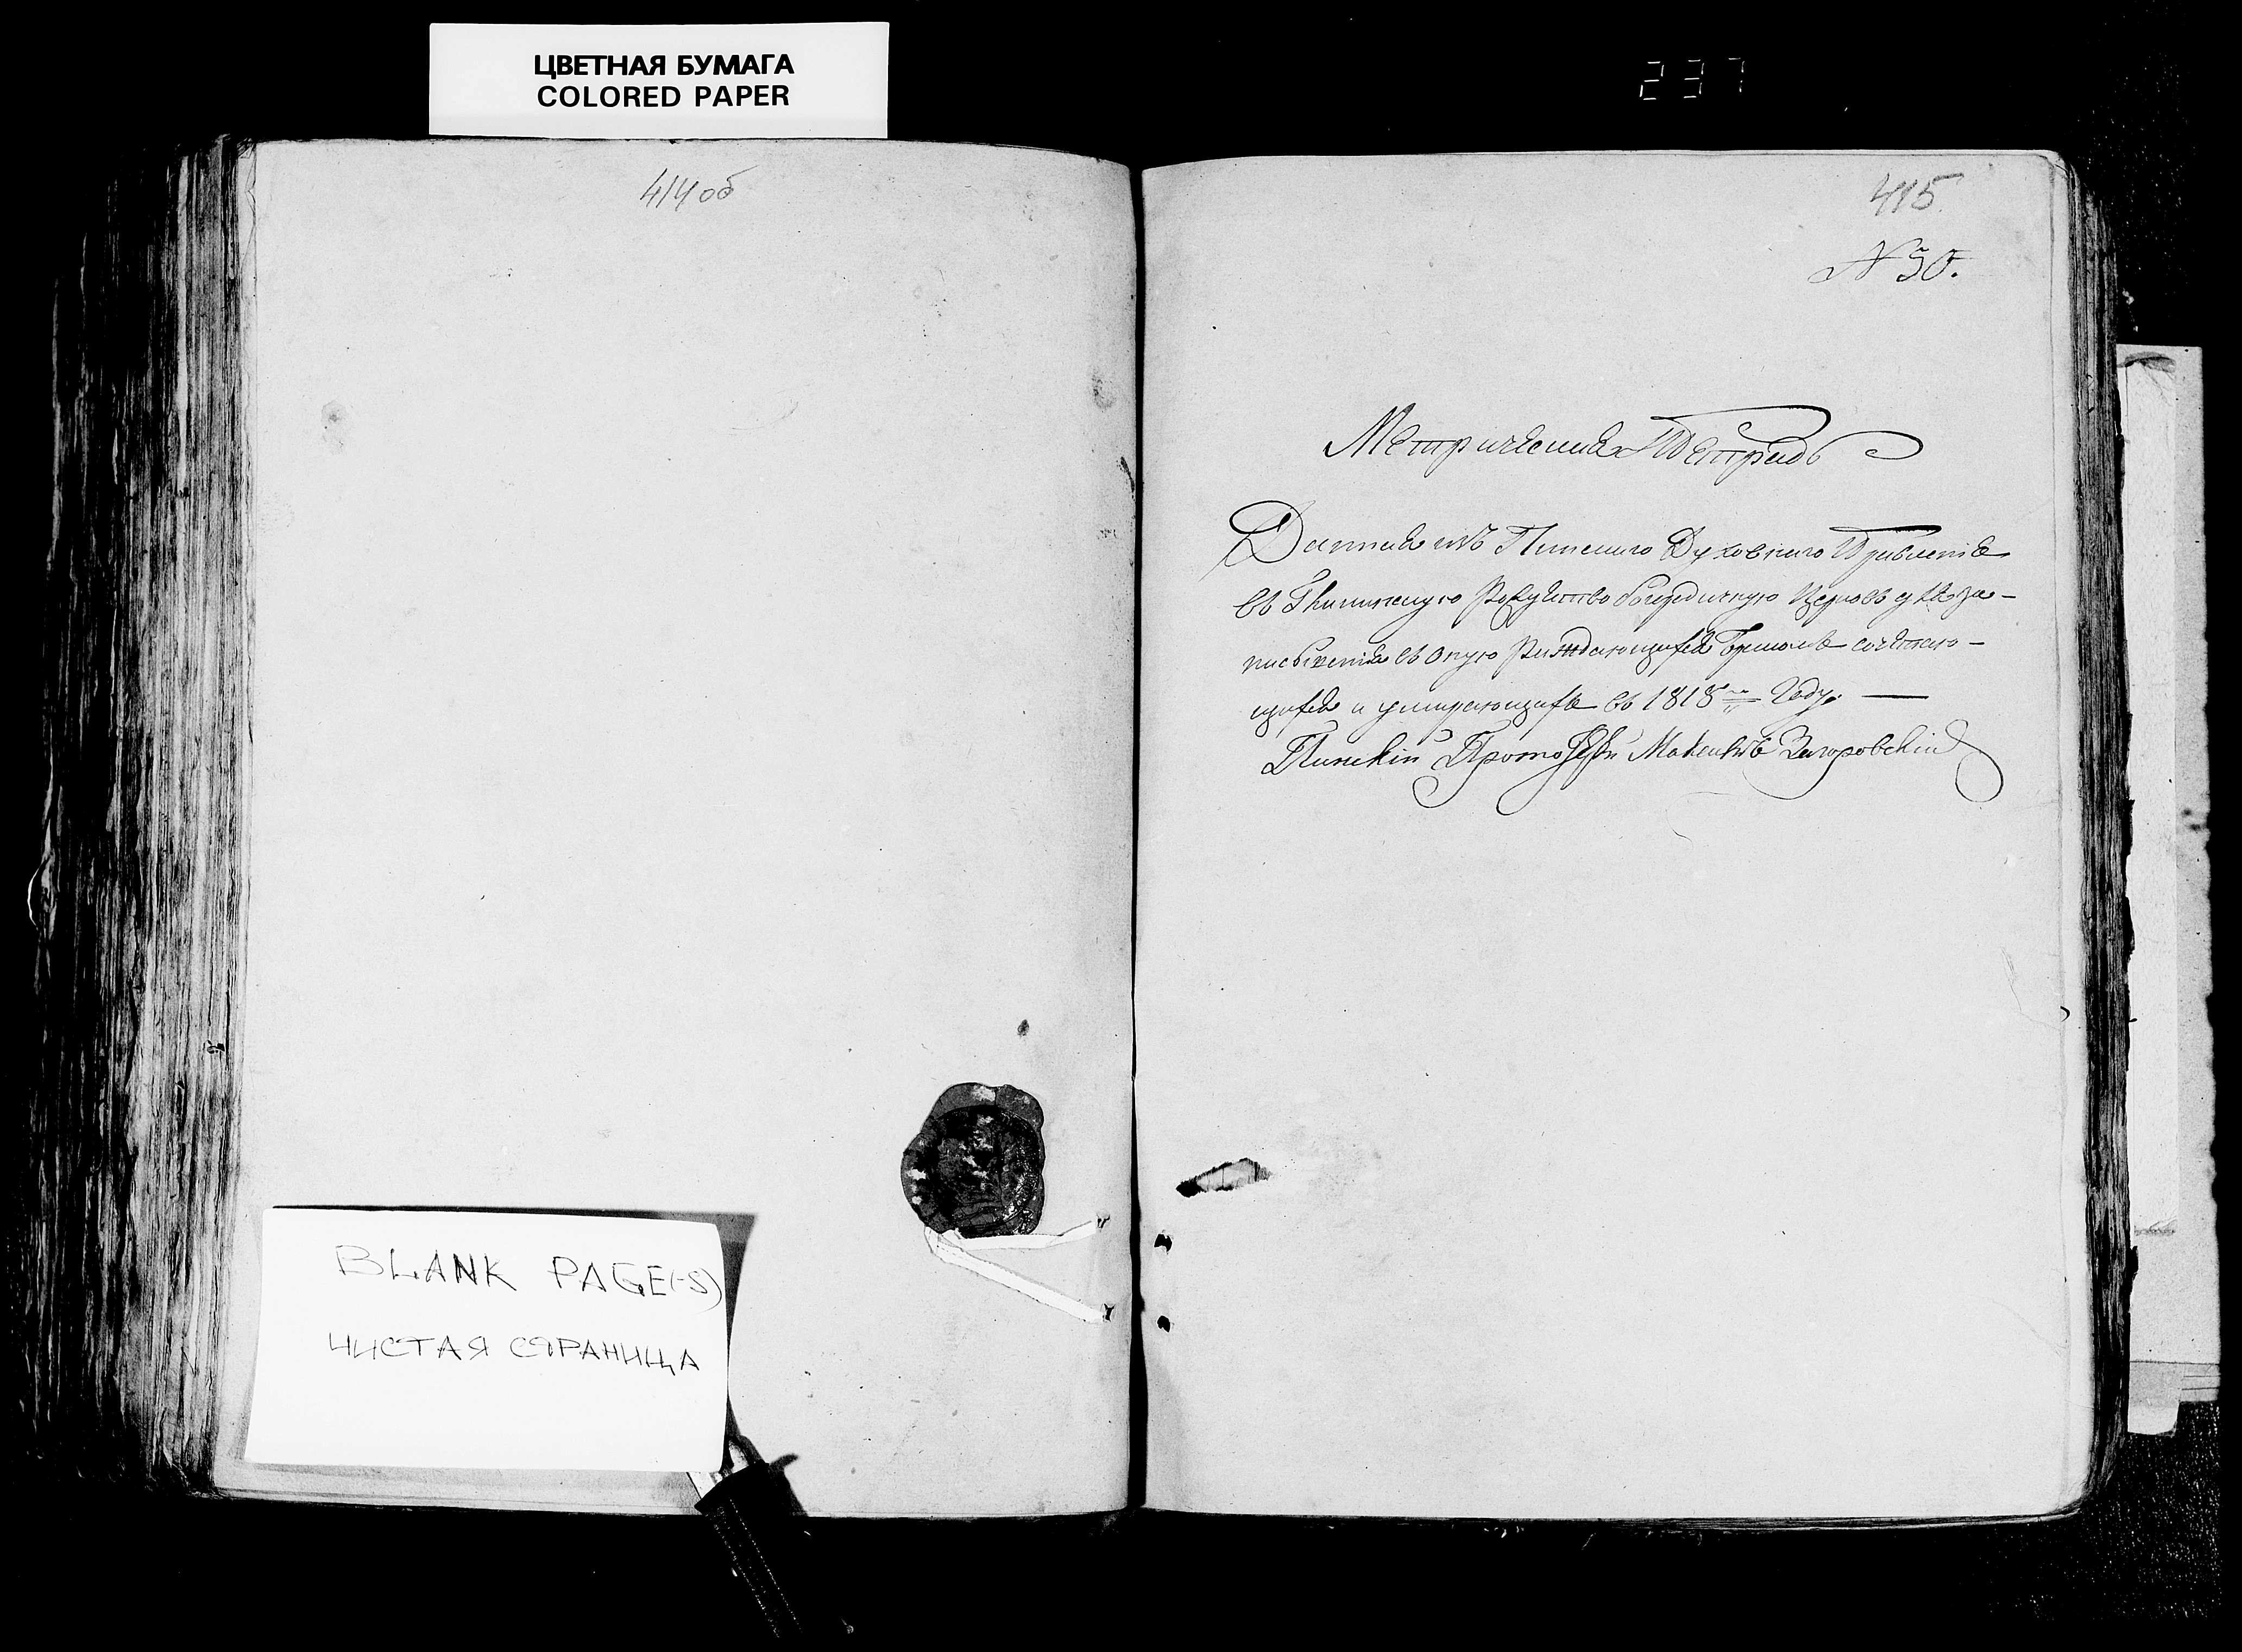 ЦВЕТНАЯ БУМАГА
COLORED PAPER
237
414об
415
N 50.
Метрическая Тетрадь
Данная изъ Пинскаго Духовнаго Правленія
въ Рождество богородичную Церковь для за-
писыванія въ оную рождающихся бракомъ сочетаю-
щихся и умирающихся въ 1818м Году.
Пинскій Протоіерей Загоровскій
BLANK PAGE(-S)
ЧИСТАЯ СТРАНИЦА